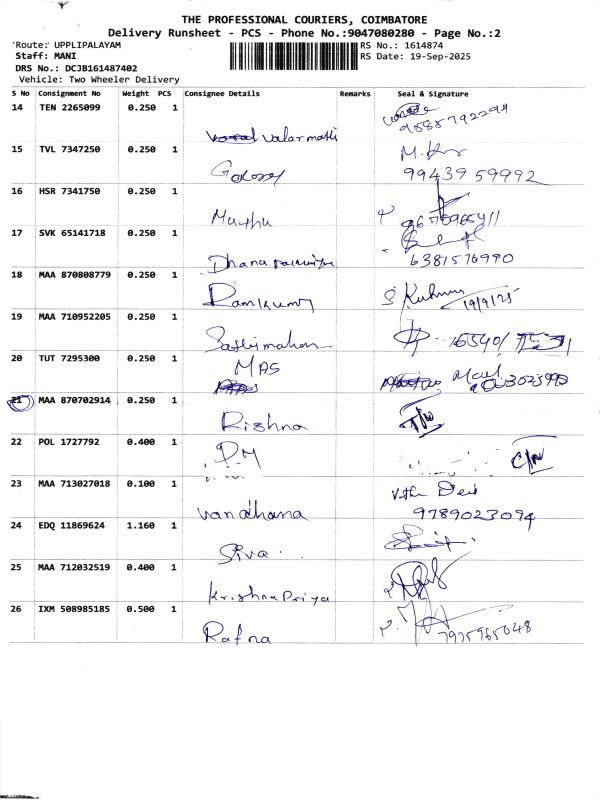 THE PROFESSIONAL COURIERS, COIMBATORE
Delivery Runsheet - PCS - Phone No.:9047080280 - Page No.:2
Route: UPPLIPALAYAM RS No.: 1614874
Staff: MANI RS Date: 19-Sep-2025
DRS No.: DCJB161487402
Vehicle: Two Wheeler Delivery
S No Consignment No Weight PCS Consignee Details Remarks Seal & Signature
14 TEN 2265099 0.250 1
Valarmathi
15 TVL 7347250 0.250 1
99439 59992
16 HSR 7341750 0.250 1
Muthu
17 SVK 65141718 0.250 1
6381576990
18 MAA 870808779 0.250 1
Ramkumar 19/9/25
19 MAA 710952205 0.250 1
20 TUT 7295300 0.250 1
MAS
21 MAA 870702914 0.250 1
Rishna
22 POL 1727792 0.400 1
DM
23 MAA 713027018 0.100 1
vandhana 9789023094
24 EDQ 11869624 1.160 1
Siva
25 MAA 712032519 0.400 1
Krishna Priya
26 IXM 508985185 0.500 1
Rafna 7975965048